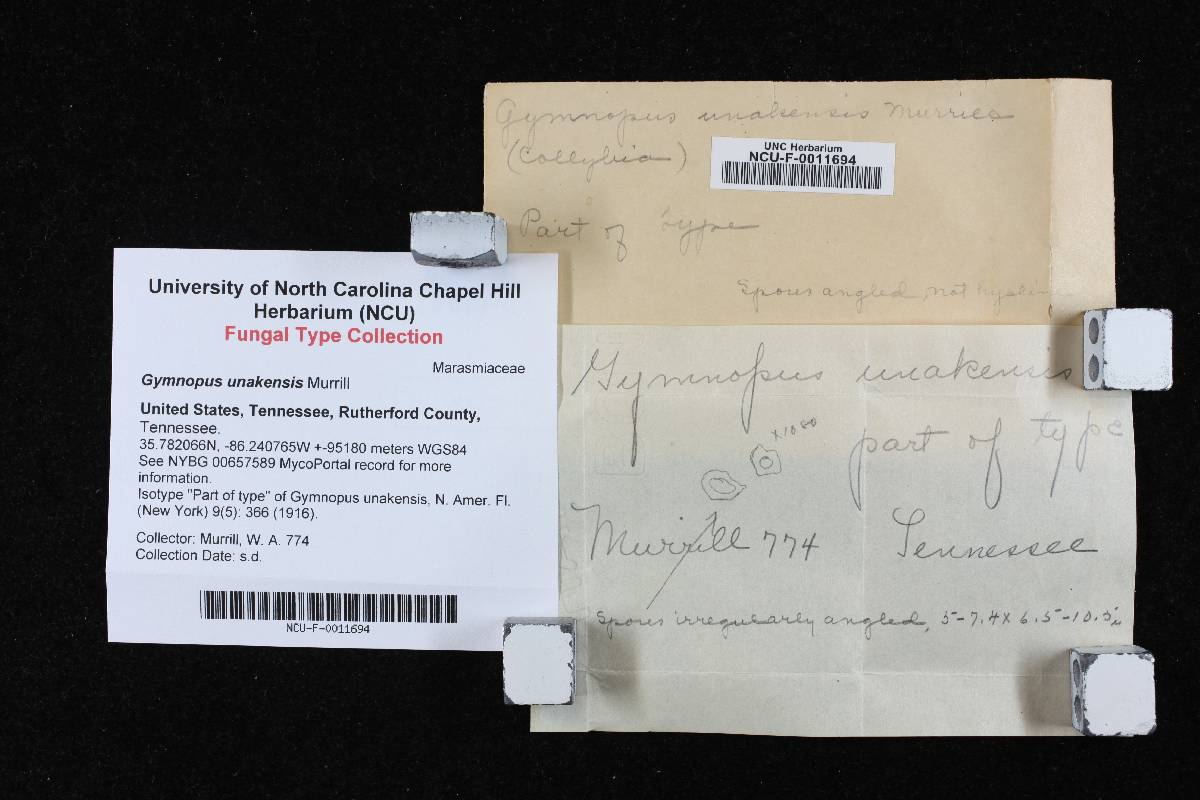 Gymnopus unakensis Murrill
(Collybia)
UNC Herbarium
NCU-F-0011694
Part of type
Spores angled, not hyaline
University of North Carolina Chapel Hill
Herbarium (NCU)
Fungal Type Collection
Marasmiaceae
Gymnopus unakensis Murrill
United States, Tennessee, Rutherford County,
Tennessee.
35.782066N, -86.240765W +-95180 meters WGS84
See NYBG 00657589 MycoPortal record for more
information.
Isotype "Part of type" of Gymnopus unakensis, N. Amer. Fl.
(New York) 9(5): 366 (1916).
Collector: Murrill, W. A. 774
Collection Date: s.d.
NCU-F-0011694
Gymnopus unakensis
x1080
part of type
Murrill 774 Tennessee
Spores irregularly angled, 5-7.4 x 6.5-10.5µ